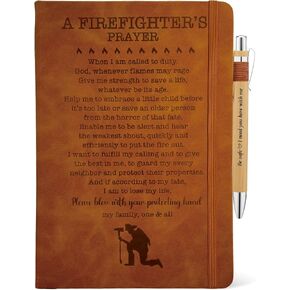 A FIREFIGHTER'S
PRAYER
When I am called to duty,
God, whenever flames may rage
Give me strength to save a life,
whatever be its age.
Help me to embrace a little child before
it's too late or save an older person
from the horror of that fate.
Enable me to be alert and hear
the weakest shout, quickly and
efficiently to put the fire out.
I want to fulfill my calling and to give
the best in me, to guard my every
neighbor and protect their properties.
And if according to my fate,
I am to lose my life,
Please bless with your protecting hand
my family, one & all
Be safe I need you here with me